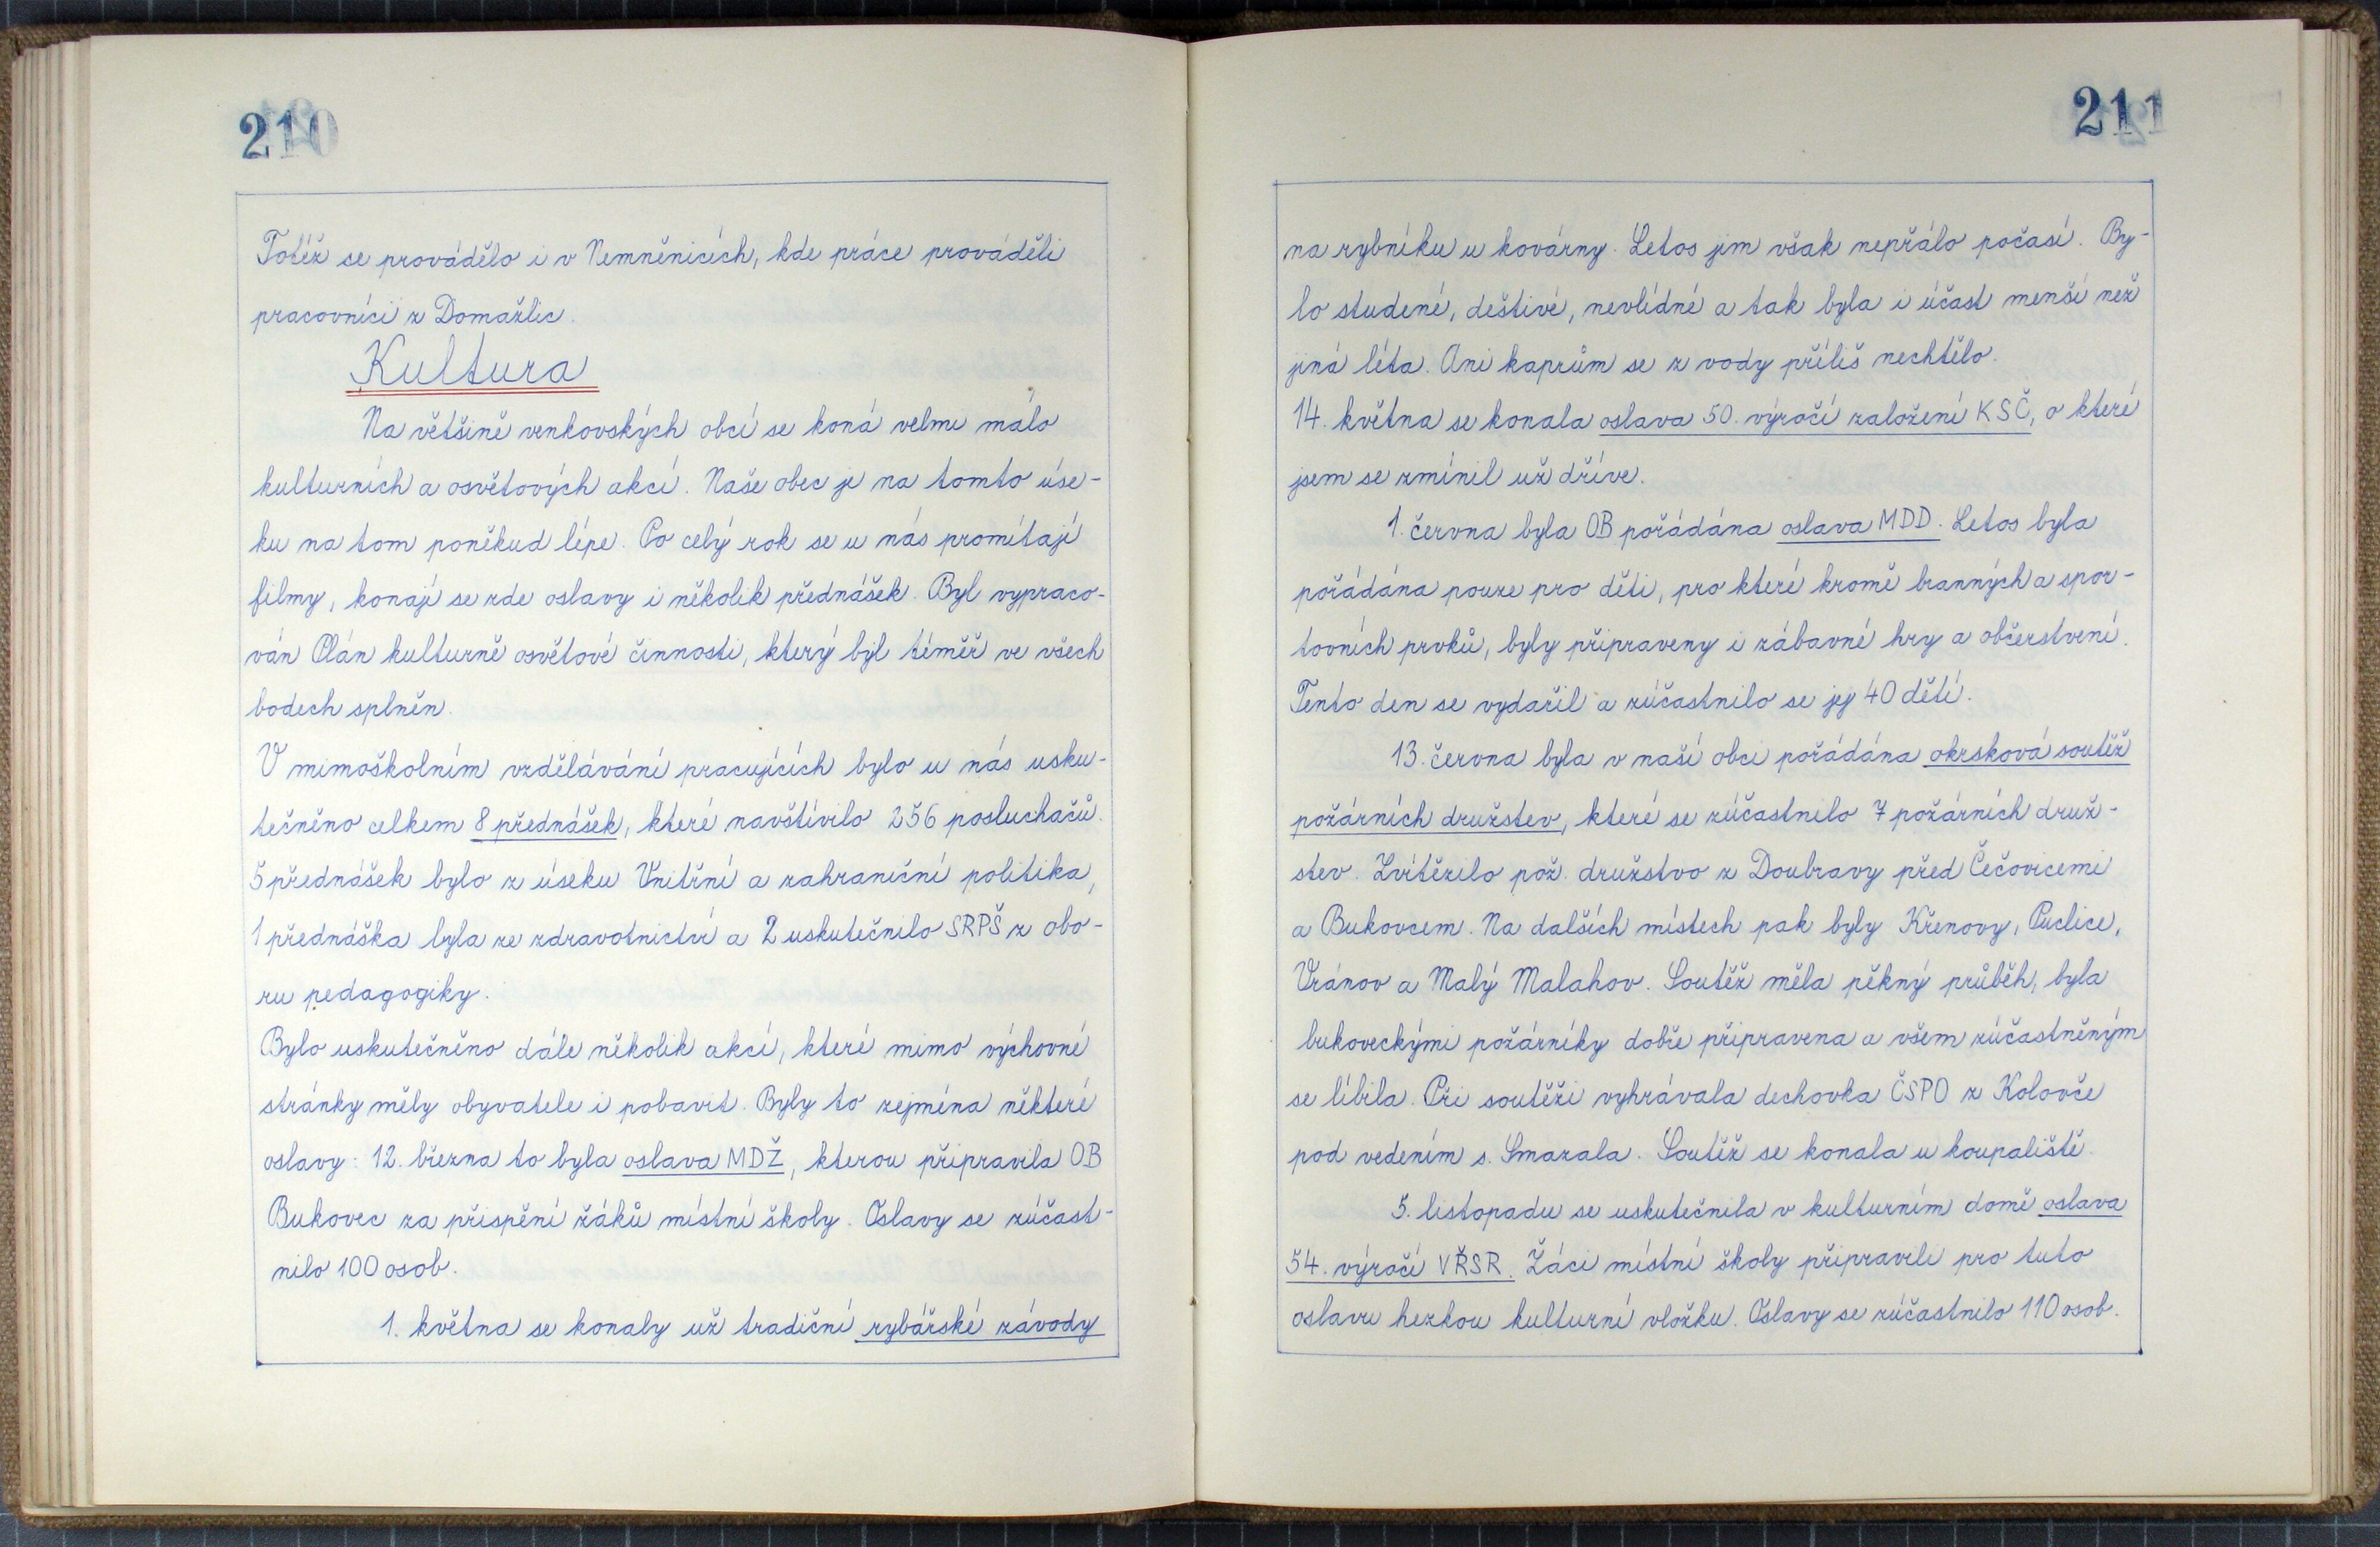 210
Totéž se provádělo i v Nemněnicích, kde práce prováděli
pracovníci z Domažlic.
Kultura
Na většině venkovských obcí se koná velmi málo
kulturních a osvětových akcí. Naše obec je na tomto úse-
ku na tom poněkud lépe. Po celý rok se u nás promítají
filmy, konají se zde oslavy i několik přednášek. Byl vypraco-
ván Plán kulturně osvětové činnosti, který byl téměř ve všech
bodech splněn.
V mimoškolním vzdělávání pracujících bylo u nás usku-
tečněno celkem 8 přednášek, které navštívilo 256 posluchačů.
5 přednášek bylo z úseku Vnitřní a zahraniční politika,
1 přednáška byla ze zdravotnictví a 2 uskutečnilo SRPŠ z obo-
ru pedagogiky.
Bylo uskutečněno dále několik akcí, které mimo výchovné
stránky měly obyvatele i pobavit. Byly to zejména některé
oslavy: 12. března to byla oslava MDŽ, kterou připravila OB
Bukovec za přispění žáků místní školy. Oslavy se zúčast-
nilo 100 osob.
1. května se konaly už tradiční rybářské závody
211
na rybníku u kovárny. Letos jim však nepřálo počasí. By-
lo studené, deštivé, nevlídné a tak byla i účast menší než
jiná léta. Ani kaprům se z vody příliš nechtělo.
14. května se konala oslava 50. výročí založení KSČ, o které
jsem se zmínil už dříve.
1. června byla OB pořádána oslava MDD. Letos byla
pořádána pouze pro děti, pro které kromě branných a spor-
tovních prvků, byly připraveny i zábavné hry a občerstvení.
Tento den se vydařil a zúčastnilo se jej 40 dětí.
13. června byla v naší obci pořádána okrsková soutěž
požárních družstev, které se zúčastnilo 7 požárních druž-
stev. Zvítězilo pož. družstvo z Doubravy před Čečovicemi
a Bukovcem. Na dalších místech pak byly Křenovy, Puclice,
Vránov a Malý Malahov. Soutěž měla pěkný průběh, byla
bukoveckými požárníky dobře připravena a všem zúčastněným
se líbila. Při soutěži vyhrávala dechovka ČSPO z Kolovče
pod vedením s. Smazala. Soutěž se konala u koupaliště.
5. listopadu se uskutečnila v kulturním domě oslava
54. výročí VŘSR. Žáci místní školy připravili pro tuto
oslavu hezkou kulturní vložku. Oslavy se zúčastnilo 110 osob.